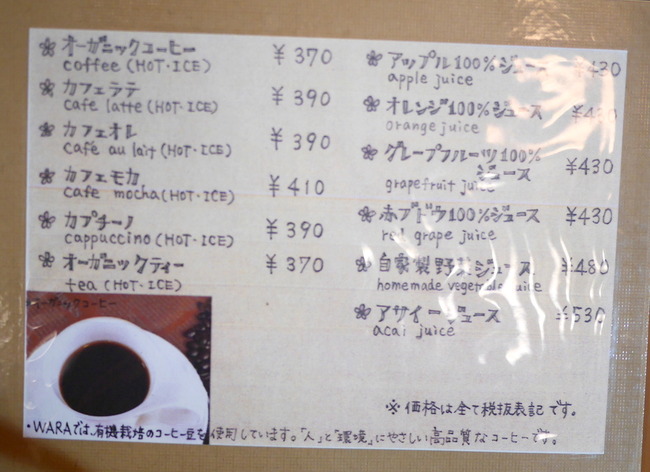 ❀ オーガニックコーヒー ¥370
coffee (HOT・ICE)
❀ カフェラテ ¥390
cafe latte (HOT・ICE)
❀ カフェオレ ¥390
café au lait (HOT・ICE)
❀ カフェモカ ¥410
cafe mocha (HOT・ICE)
❀ カプチーノ ¥390
cappuccino (HOT・ICE)
❀ オーガニックティー ¥370
tea (HOT・ICE)
❀ アップル100%ジュース ¥430
apple juice
❀ オレンジ100%ジュース
orange juice
❀ グレープフルーツ100%
ジュース ¥430
grapefruit juice
❀ 赤ブドウ100%ジュース ¥430
red grape juice
❀ 自家製野菜ジュース ¥480
homemade vegetable juice
❀ アサイージュース ¥530
acai juice
※ 価格は全て税抜表記です。
オーガニックコーヒー
・WARAでは、有機栽培のコーヒー豆を使用しています。「人」と「環境」にやさしい高品質なコーヒーです。